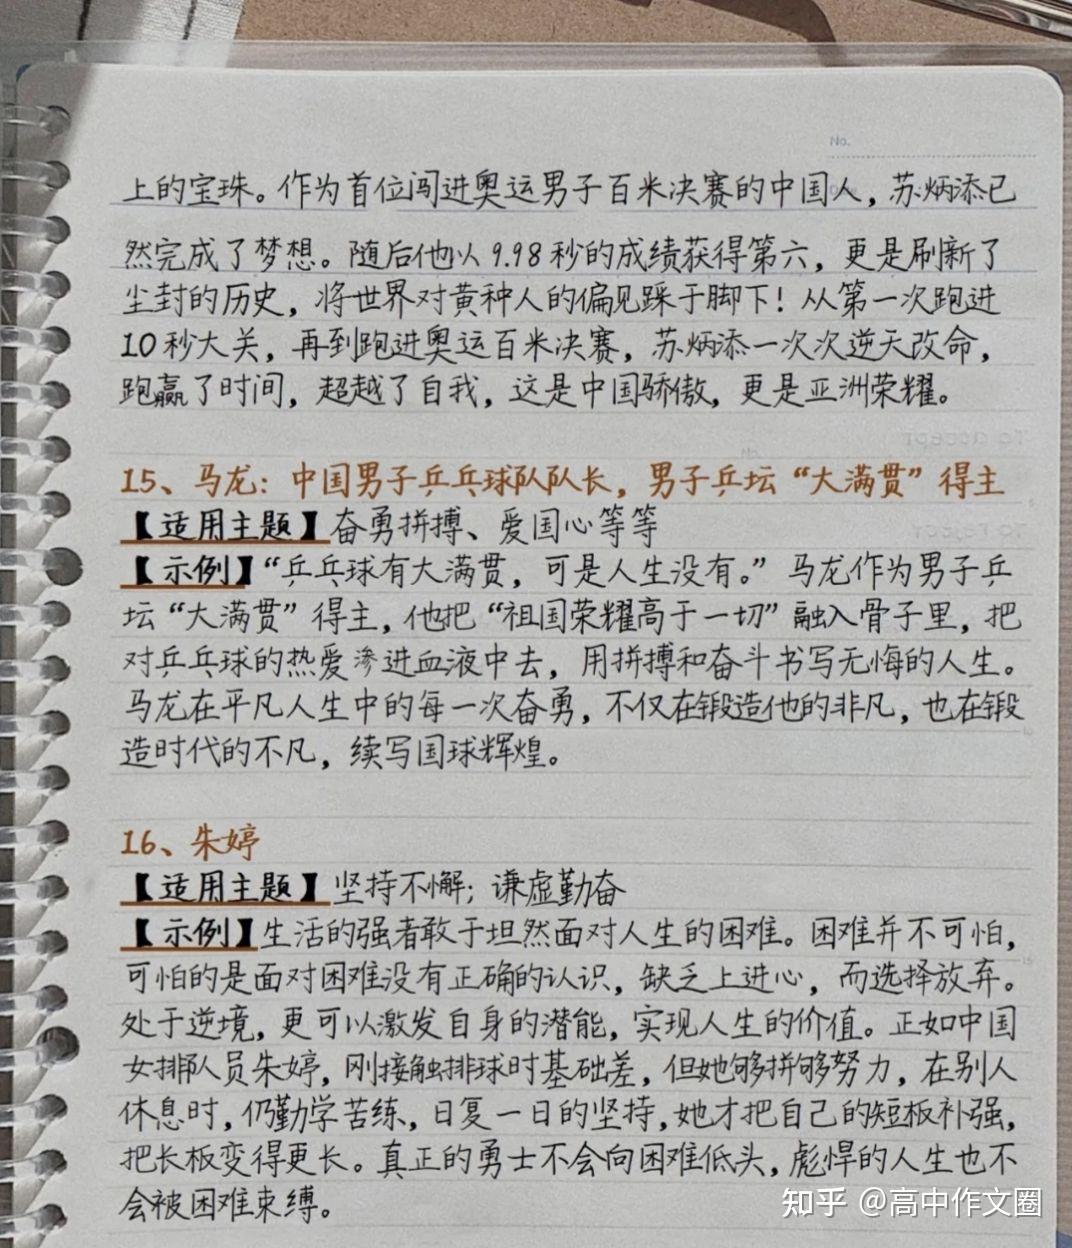 No.
上的宝珠。作为首位闯进奥运男子百米决赛的中国人，苏炳添已
然完成了梦想。随后他以9.98秒的成绩获得第六，更是刷新了
尘封的历史，将世界对黄种人的偏见踩于脚下！从第一次跑进
10秒大关，再到跑进奥运百米决赛，苏炳添一次次逆天改命，
跑赢了时间，超越了自我，这是中国骄傲，更是亚洲荣耀。
15、马龙：中国男子乒乓球队队长，男子乒坛“大满贯”得主
【适用主题】奋勇拼搏、爱国心等等
【示例】“乒乓球有大满贯，可是人生没有。”马龙作为男子乒
坛“大满贯”得主，他把“祖国荣耀高于一切”融入骨子里，把
对乒乓球的热爱渗进血液中去，用拼搏和奋斗书写无悔的人生。
马龙在平凡人生中的每一次奋勇，不仅在锻造他的非凡，也在锻
造时代的不凡，续写国球辉煌。
16、朱婷
【适用主题】坚持不懈；谦虚勤奋
【示例】生活的强者敢于坦然面对人生的困难。困难并不可怕，
可怕的是面对困难没有正确的认识，缺乏上进心，而选择放弃。
处于逆境，更可以激发自身的潜能，实现人生的价值。正如中国
女排队员朱婷，刚接触排球时基础差，但她够拼够努力，在别人
休息时，仍勤学苦练，日复一日的坚持，她才把自己的短板补强，
把长板变得更长。真正的勇士不会向困难低头，彪悍的人生也不
会被困难束缚。
知乎 @高中作文圈